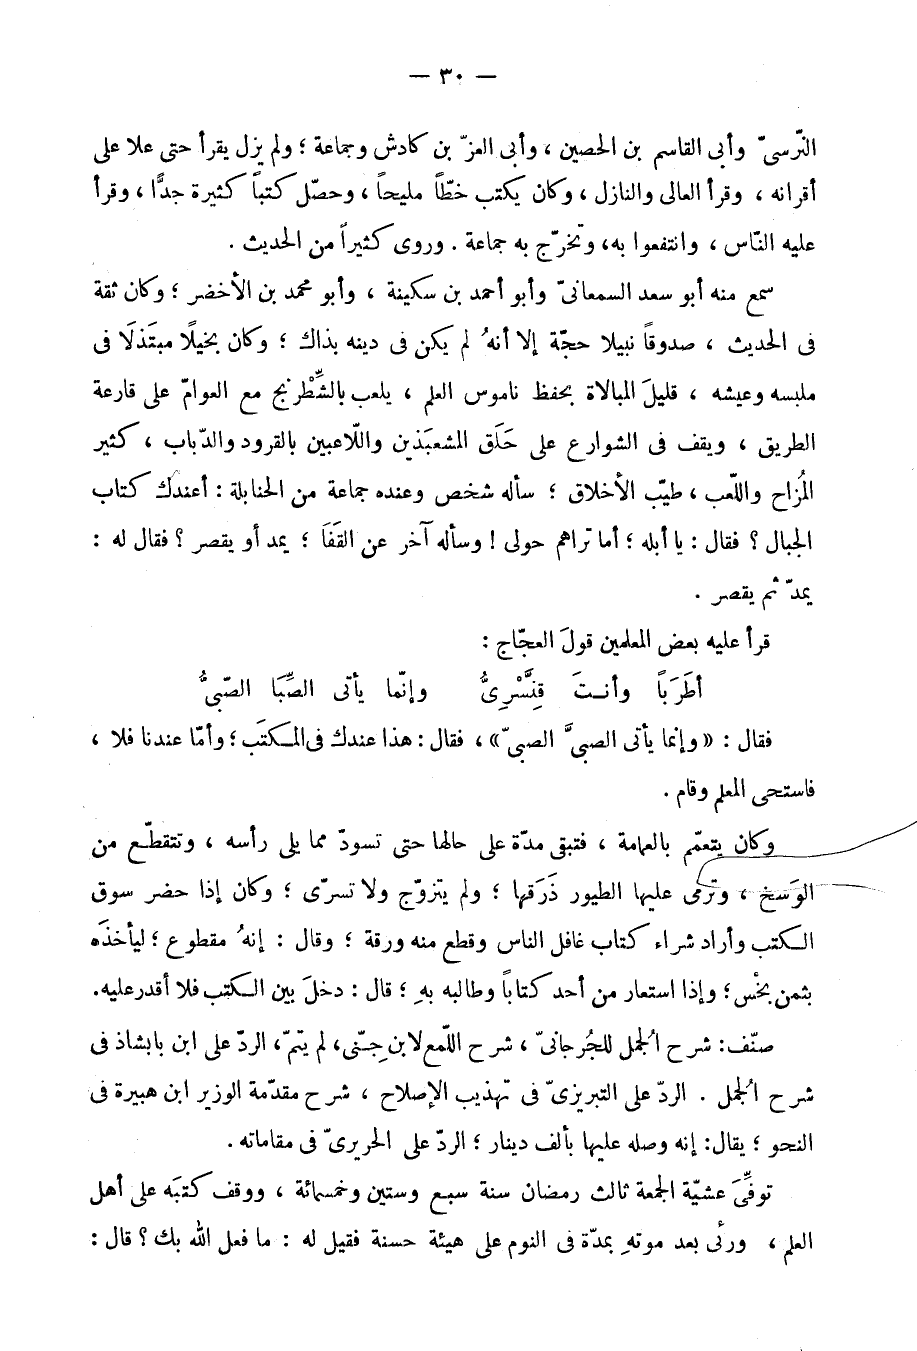 — ٣٠ —
النّرسىّ وأبى القاسم بن الحصين ، وأبى العزّ بن كادش وجماعة ؛ ولم يزل يقرأ حتى علا على
أقرانه ، وقرأ العالى والنازل ، وكان يكتب خطّاً مليحاً ، وحصّل كتباً كثيرة جدًّا ، وقرأ
عليه النّاس ، وانتفعوا به، وتخرّج به جماعة . وروى كثيراً من الحديث .
سمع منه أبو سعد السمعانىّ وأبو أحمد بن سكينة ، وأبو محمد بن الأخضر ؛ وكان ثقة
فى الحديث ، صدوقاً نبيلا حجّة إلا أنهُ لم يكن فى دينه بذاك ؛ وكان بخيلًا مبتَذلًا فى
ملبسه وعيشه ، قليلَ المبالاة بحفظ ناموس العلم ، يلعب بالشِّطْرنج مع العوامّ على قارعة
الطريق ، ويقف فى الشوارع على حَلَق المشعبَذين واللّاعبين بالقرود والدّباب ، كثير
المُزاح واللّعب ، طيّب الأخلاق ؛ سأله شخص وعنده جماعة من الحنابلة : أعندك كتاب
الجبال ؟ فقال : يا أبله ؛ أما تراهم حولى ! وسأله آخر عن القَفَا ؛ يمد أو يقصر ؟ فقال له :
يمدّ ثم يقصر .
قرأ عليه بعض المعلمين قولَ العجّاج :
أطَرَباً وأنـتَ قِنَّسْرِىُّ وإنّما يأتى الصِّبَا الصّبىُّ
فقال : «وإنما يأتى الصبىَّ الصبىّ» ، فقال : هذا عندك فى المـكتَب ؛ وأمّا عندنا فلا ،
فاستحى المعلم وقام .
وكان يتعمّم بالعمامة ، فتبقى مدّة على حالها حتى تسودّ مما يلى رأسه ، وتتقطّـع من
الوَسخ ، وتَرمى عليها الطيور ذَرَقها ؛ ولم يتزوّج ولا تسرّى ؛ وكان إذا حضر سوق
الـكتب وأراد شراء كتاب غافل الناس وقطع منه ورقة ؛ وقال : إنهُ مقطوع ؛ ليأخذَه
بثمن بخْس ؛ وإذا استعار من أحد كتاباً وطالبه بهِ ؛ قال : دخلَ بين الـكتب فلا أقدر عليه.
صنّف: شرح الُجمل للجُرجانىّ ، شرح اللّمع لابن جِـنّى، لم يتمّ، الردّ على ابن بابشاذ فى
شرح الُجمل . الردّ على التبريزىّ فى تهذيب الإصلاح ، شرح مقدّمة الوزير ابن هبيرة فى
النحو ؛ يقال: إنه وصله عليها بألف دينار ؛ الردّ على الحريرىّ فى مقاماته .
توفِّىَ عشيّة الجمعة ثالث رمضان سنة سبع وستين وخمسمائة ، ووقف كتبَه على أهل
العلم ، ورئى بعد موتهِ بمدّة فى النوم على هيئة حسنة فقيل له : ما فعل الله بك ؟ قال :